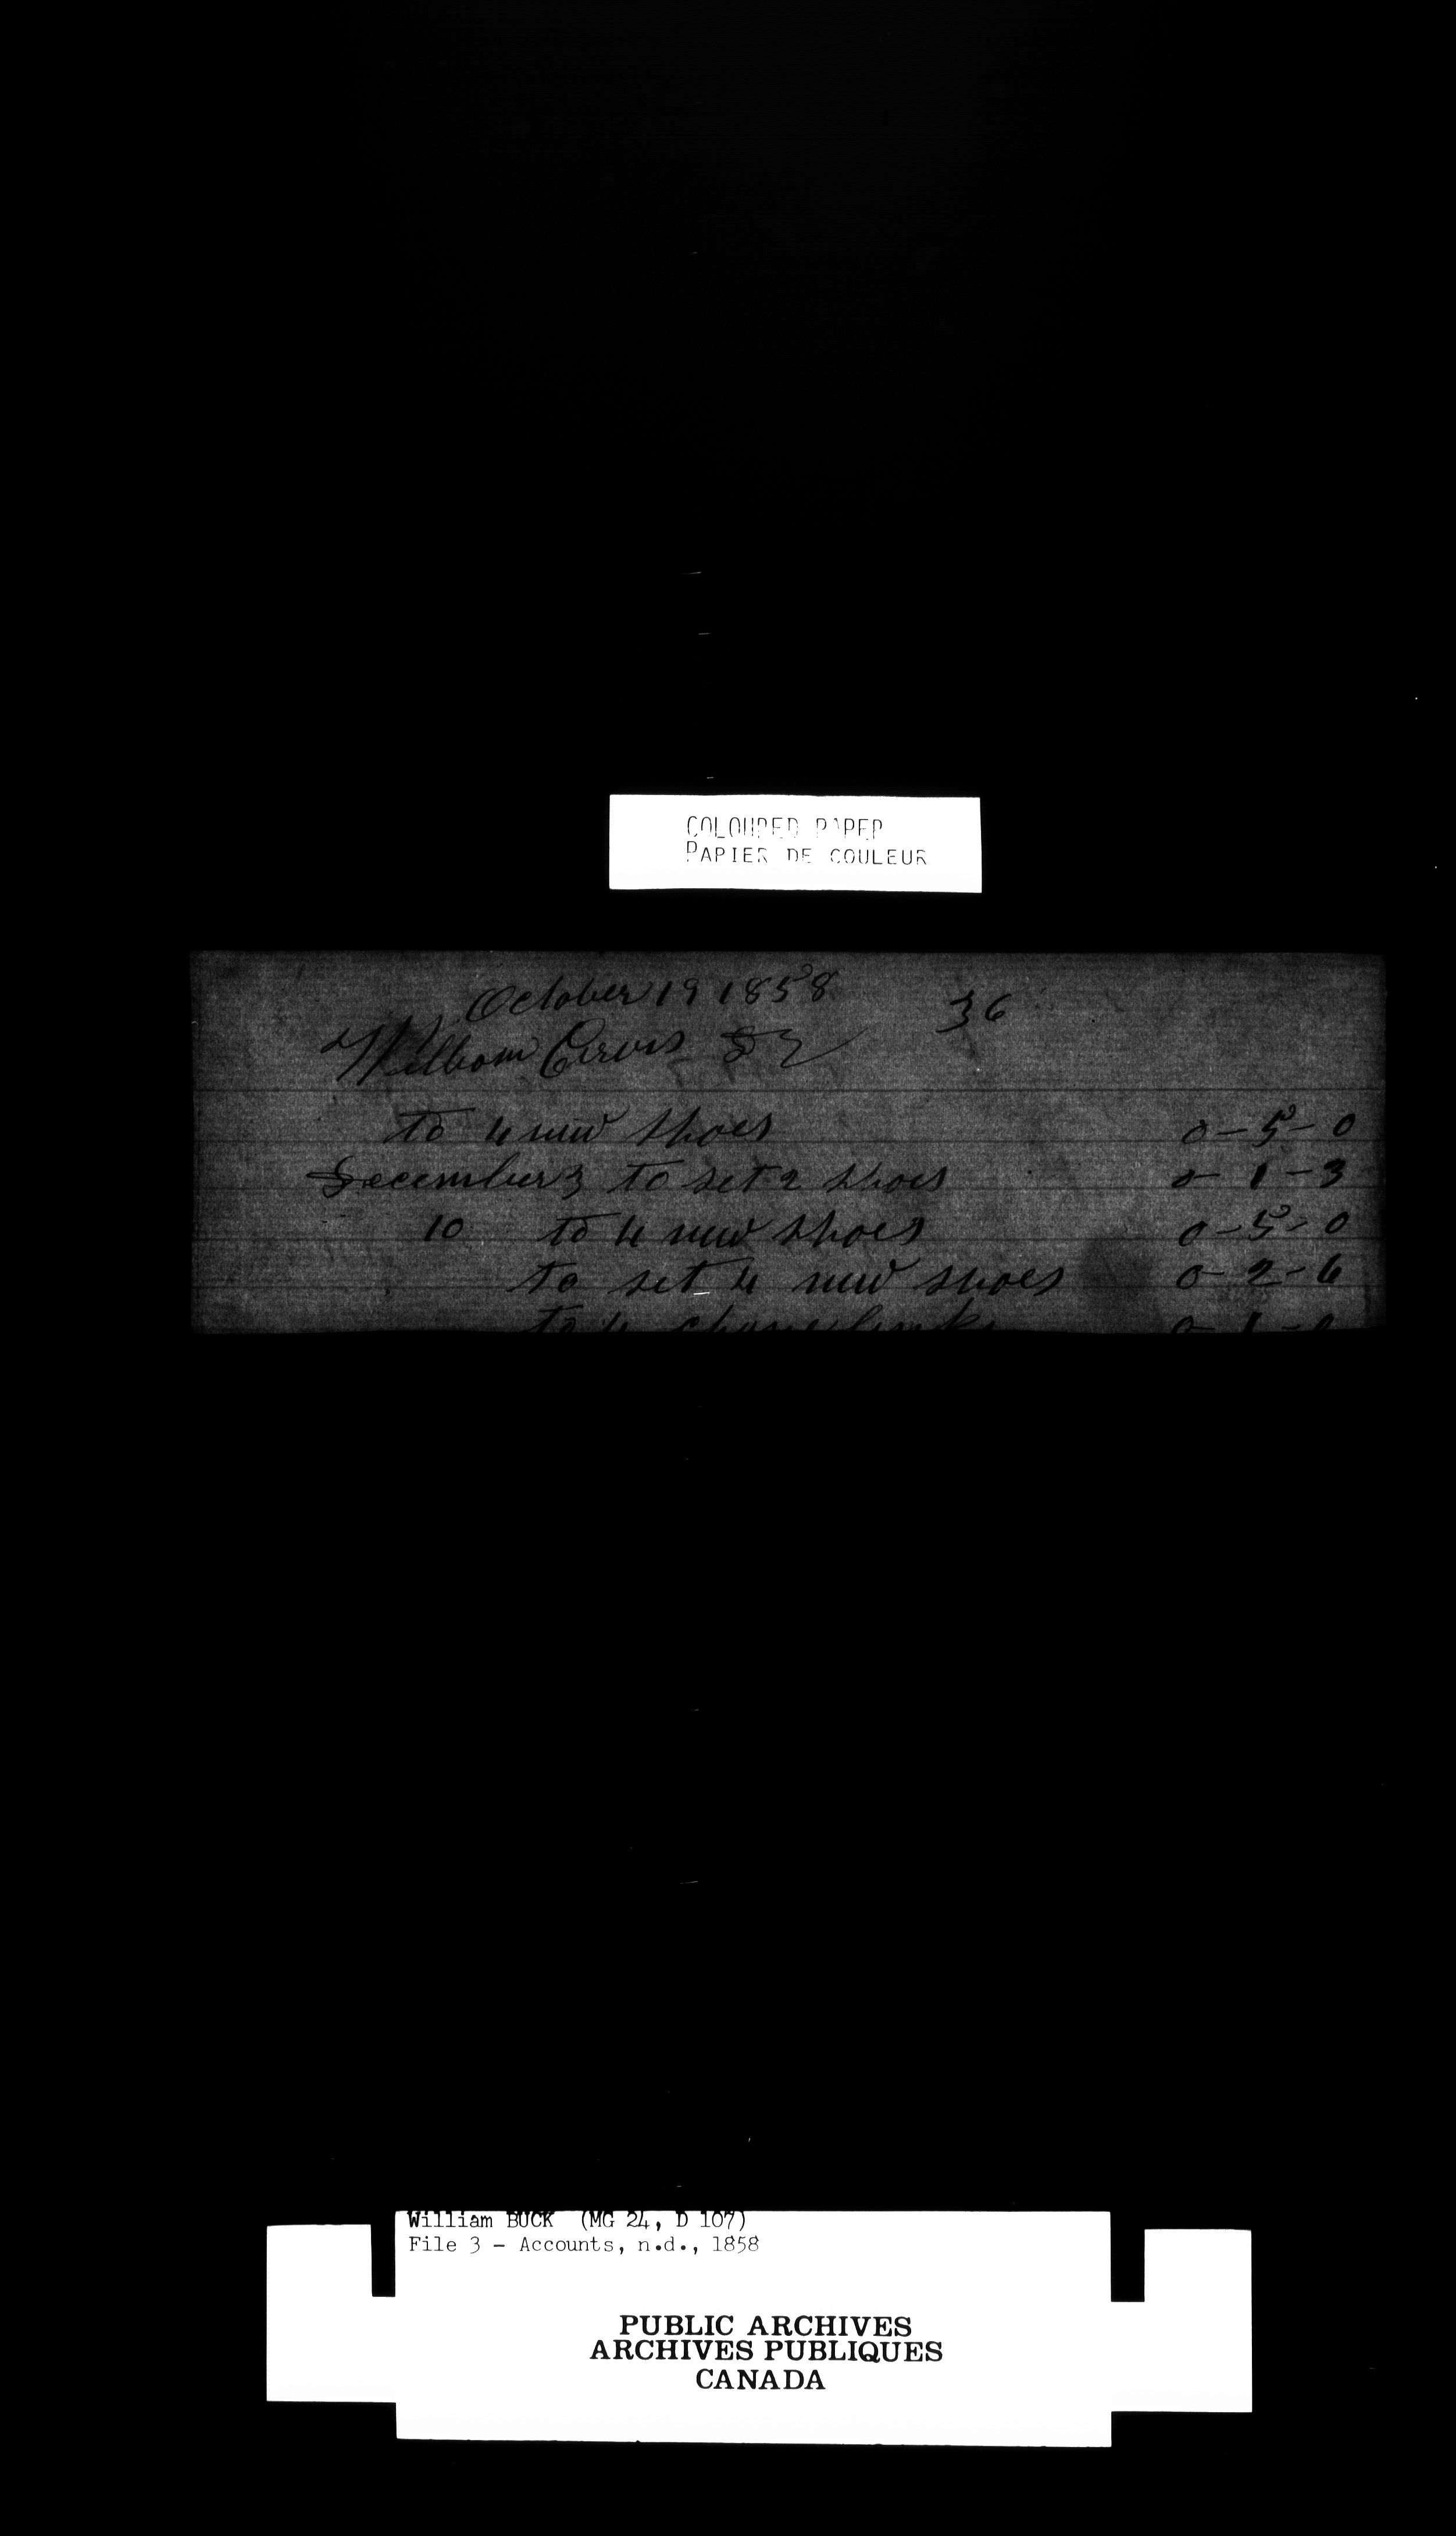 COLOURED PAPER
PAPIER DE COULEUR
October 19 1858
36
William Dr
to 4 new shoes 0-5-0
December 3 to set 2 shoes 0-1-3
10 to 4 new shoes 0-5-0
to set 4 new shoes 0-2-6
to 4 links 0-1-
William BUCK (MG 24, D 107)
File 3 - Accounts, n.d., 1858
PUBLIC ARCHIVES
ARCHIVES PUBLIQUES
CANADA